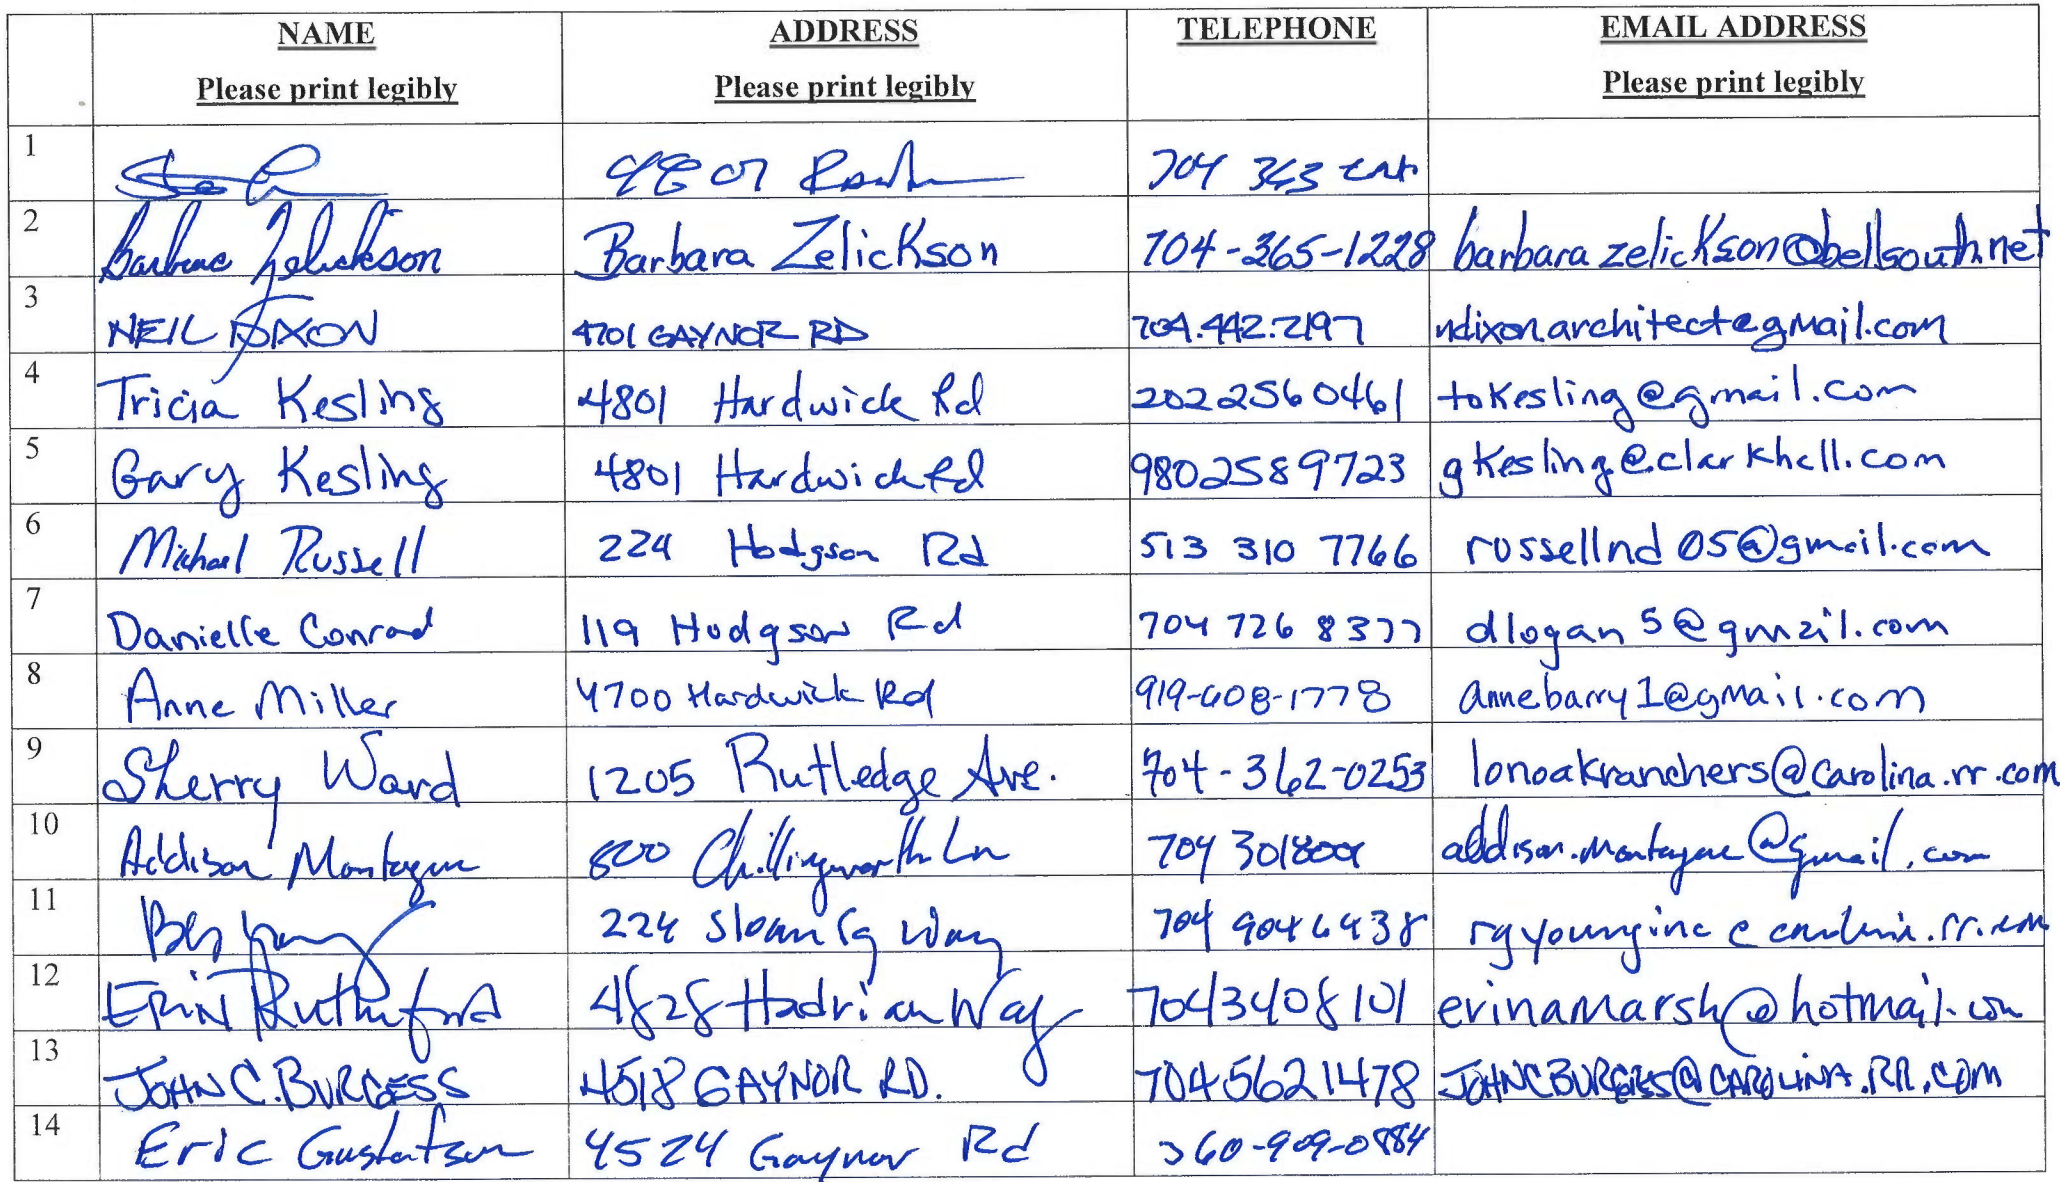 NAME ADDRESS TELEPHONE EMAIL ADDRESS
Please print legibly Please print legibly Please print legibly
1 704 363
2 Barbara Zelickson Barbara Zelickson 704-365-1228 barbarazelickson@bellsouth.net
3 NEIL DIXON 4701 GAYNOR RD 704.442.2197 ndixon.architect@gmail.com
4 Tricia Kesling 4801 Hardwick Rd 202 256 0461 tokesling@gmail.com
5 Gary Kesling 4801 Hardwick Rd 9802589723 gkesling@clarkhill.com
6 Michael Russell 224 Hodgson Rd 513 310 7766 russellnd05@gmail.com
7 Danielle Conrad 119 Hodgson Rd 704 726 8377 dlogan5@gmail.com
8 Anne Miller 4700 Hardwick Rd 919-608-1778 annebarry1@gmail.com
9 Sherry Ward 1205 Rutledge Ave. 704-362-0253 lonoakranchers@carolina.rr.com
10 Addison Montague 800 Chillingworth Ln 704 301 addison.montague@gmail.com
11 224 Way 704 904 6438 rgyounginc@carolina.rr.com
12 ERIN Rutherford 4828 Hadrian Way 7043408101 erinamarsh@hotmail.com
13 JOHN C. BURGESS 4518 GAYNOR RD. 7045621478 JOHNCBURGESS@CAROLINA.RR.COM
14 Eric Gustafson 4524 Gaynor Rd 360-909-0884